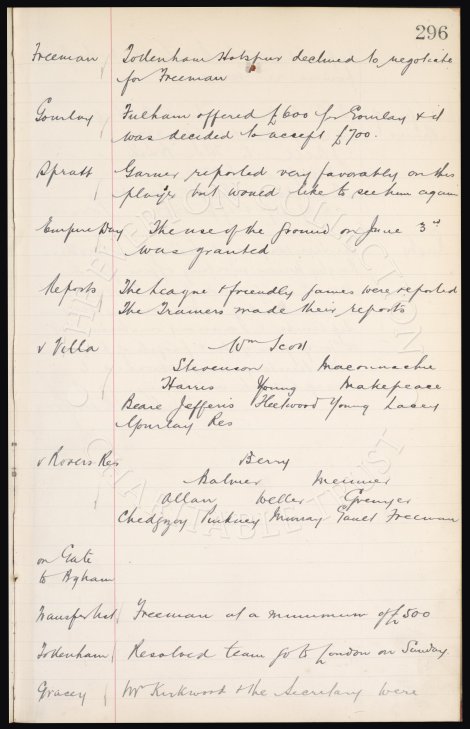 296
Freeman Todenham Hotspur declined to negotiate
for Freeman
Gourlay Fulham offered £600 for Gourlay & it
was decided to accept £700.
Spratt Garner reported very favorably on this
player but would like to see him again
Empire Day The use of the ground on June 3rd
was granted
Reports The League & friendly games were reported
The Trainers made their reports
v Villa Wm Scott
Stevenson Maconnachie
Harris Young Makepeace
Beare Jefferis Fleetwood Young Lacey
Gourlay Res
v Rovers Res Berry
Balmer Meunier
Allan Weller Grenyer
Chedgzoy Pinkney Murray Gault Freeman
on Gate
to Bykam
Transfer List Freeman at a minimum of £500
Todenham Resolved team go to London on Sunday
Gracey Mr Kirkwood & the Secretary were
THE EVERTON COLLECTION
CHARITABLE TRUST